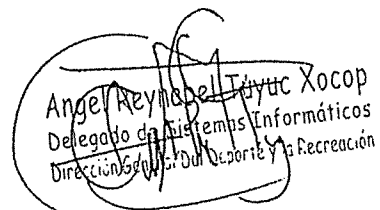 Angel Reynabel Tuyuc Xocop
Delegado de Sistemas Informáticos
Dirección General Del Deporte y la Recreación